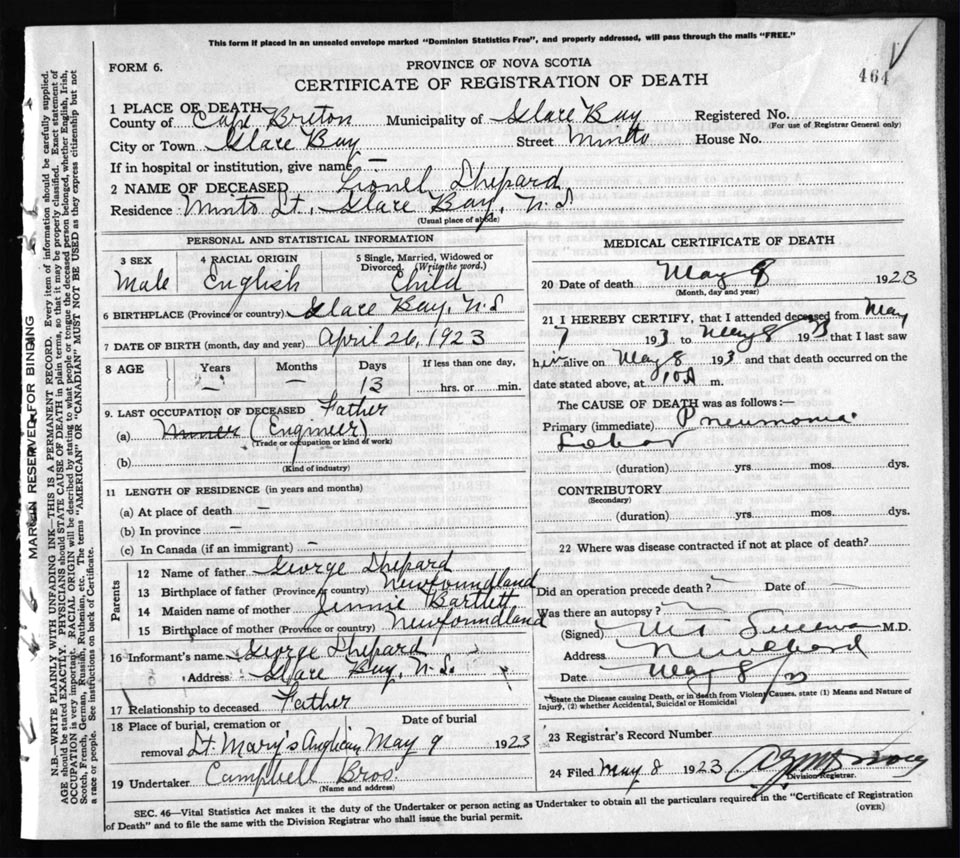 This form if placed in an unsealed envelope marked "Dominion Statistics Free", and properly addressed, will pass through the mails "FREE."
FORM 6.
PROVINCE OF NOVA SCOTIA
464
CERTIFICATE OF REGISTRATION OF DEATH
1 PLACE OF DEATH
County of Cape Breton Municipality of Glace Bay Registered No.
(For use of Registrar General only)
City or Town Glace Bay Street Minto House No.
If in hospital or institution, give name —
2 NAME OF DECEASED Lionel Shepard
Residence Minto St., Glace Bay, N.S
(Usual place of abode)
PERSONAL AND STATISTICAL INFORMATION
3 SEX 4 RACIAL ORIGIN 5 Single, Married, Widowed or Divorced. (Write the word.)
Male English Child
6 BIRTHPLACE (Province or country) Glace Bay, N.S
7 DATE OF BIRTH (month, day and year) April 26, 1923
8 AGE Years Months Days If less than one day,
— — 13 hrs. or min.
9. LAST OCCUPATION OF DECEASED Father
(a) Miner (Engineer)
(Trade or occupation or kind of work)
(b)
(Kind of industry)
11 LENGTH OF RESIDENCE (in years and months)
(a) At place of death —
(b) In province —
(c) In Canada (if an immigrant) —
Parents
12 Name of father George Shepard
13 Birthplace of father (Province or country) Newfoundland
14 Maiden name of mother Jennie Bartlett
15 Birthplace of mother (Province or country) Newfoundland
16 Informant's name George Shepard
Address Glace Bay, N.S.
17 Relationship to deceased Father
18 Place of burial, cremation or Date of burial
removal St. Mary's Anglican May 9 1923
19 Undertaker Campbell Bros.
(Name and address)
MEDICAL CERTIFICATE OF DEATH
20 Date of death May 8 1923
(Month, day and year)
21 I HEREBY CERTIFY, that I attended deceased from May
7 193 to May 8 193 that I last saw
him alive on May 8 193 and that death occurred on the
date stated above, at 10 A m.
The CAUSE OF DEATH was as follows:—
Primary (immediate) Pneumonia
Lobar
(duration) yrs. mos. dys.
CONTRIBUTORY
(Secondary)
(duration) yrs. mos. dys.
22 Where was disease contracted if not at place of death?
Did an operation precede death? Date of
Was there an autopsy?
(Signed) M.D.
Address
Date May 8
State the Disease causing Death, or in death from Violent Causes, state (1) Means and Nature of
Injury, (2) whether Accidental, Suicidal or Homicidal
23 Registrar's Record Number
24 Filed May 8 1923
Division Registrar.
SEC. 46—Vital Statistics Act makes it the duty of the Undertaker or person acting as Undertaker to obtain all the particulars required in the "Certificate of Registration
of Death" and to file the same with the Division Registrar who shall issue the burial permit.
(OVER)
MARGIN RESERVED FOR BINDING
N.B.—WRITE PLAINLY WITH UNFADING INK—THIS IS A PERMANENT RECORD. Every item of information should be carefully supplied.
AGE should be stated EXACTLY. PHYSICIANS should STATE CAUSE OF DEATH in plain terms, so that it may be properly classified. Exact statement of
OCCUPATION is very important. RACIAL ORIGIN will be described by stating to what people or tongue the deceased person belonged, whether English, Irish,
Scotch, French, German, Russian, Ruthenian, etc. The terms "AMERICAN" OR "CANADIAN" MUST NOT BE USED as they express citizenship but not
a race or people. See instructions on back of Certificate.